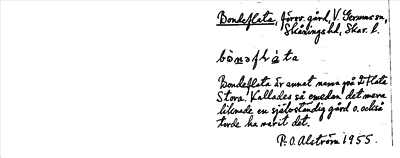 Bondeflata, försv. gård, V. Gerumssn,
Skånings hd, Skar. l.
bònəflàta
Bondeflata är annat namn på Flata
Stora. Kallades så emedan det mera
liknade en självständig gård o. också
torde ha varit det.
P. O. Alström 1955.